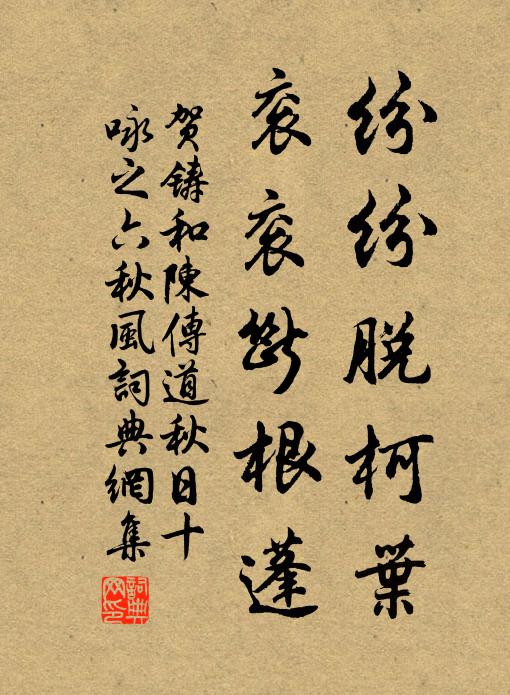 紛紛脫柯葉
袞袞斷根蓬
賀鑄和陳傳道秋日十
咏之六秋風詞典網集
詞典网印